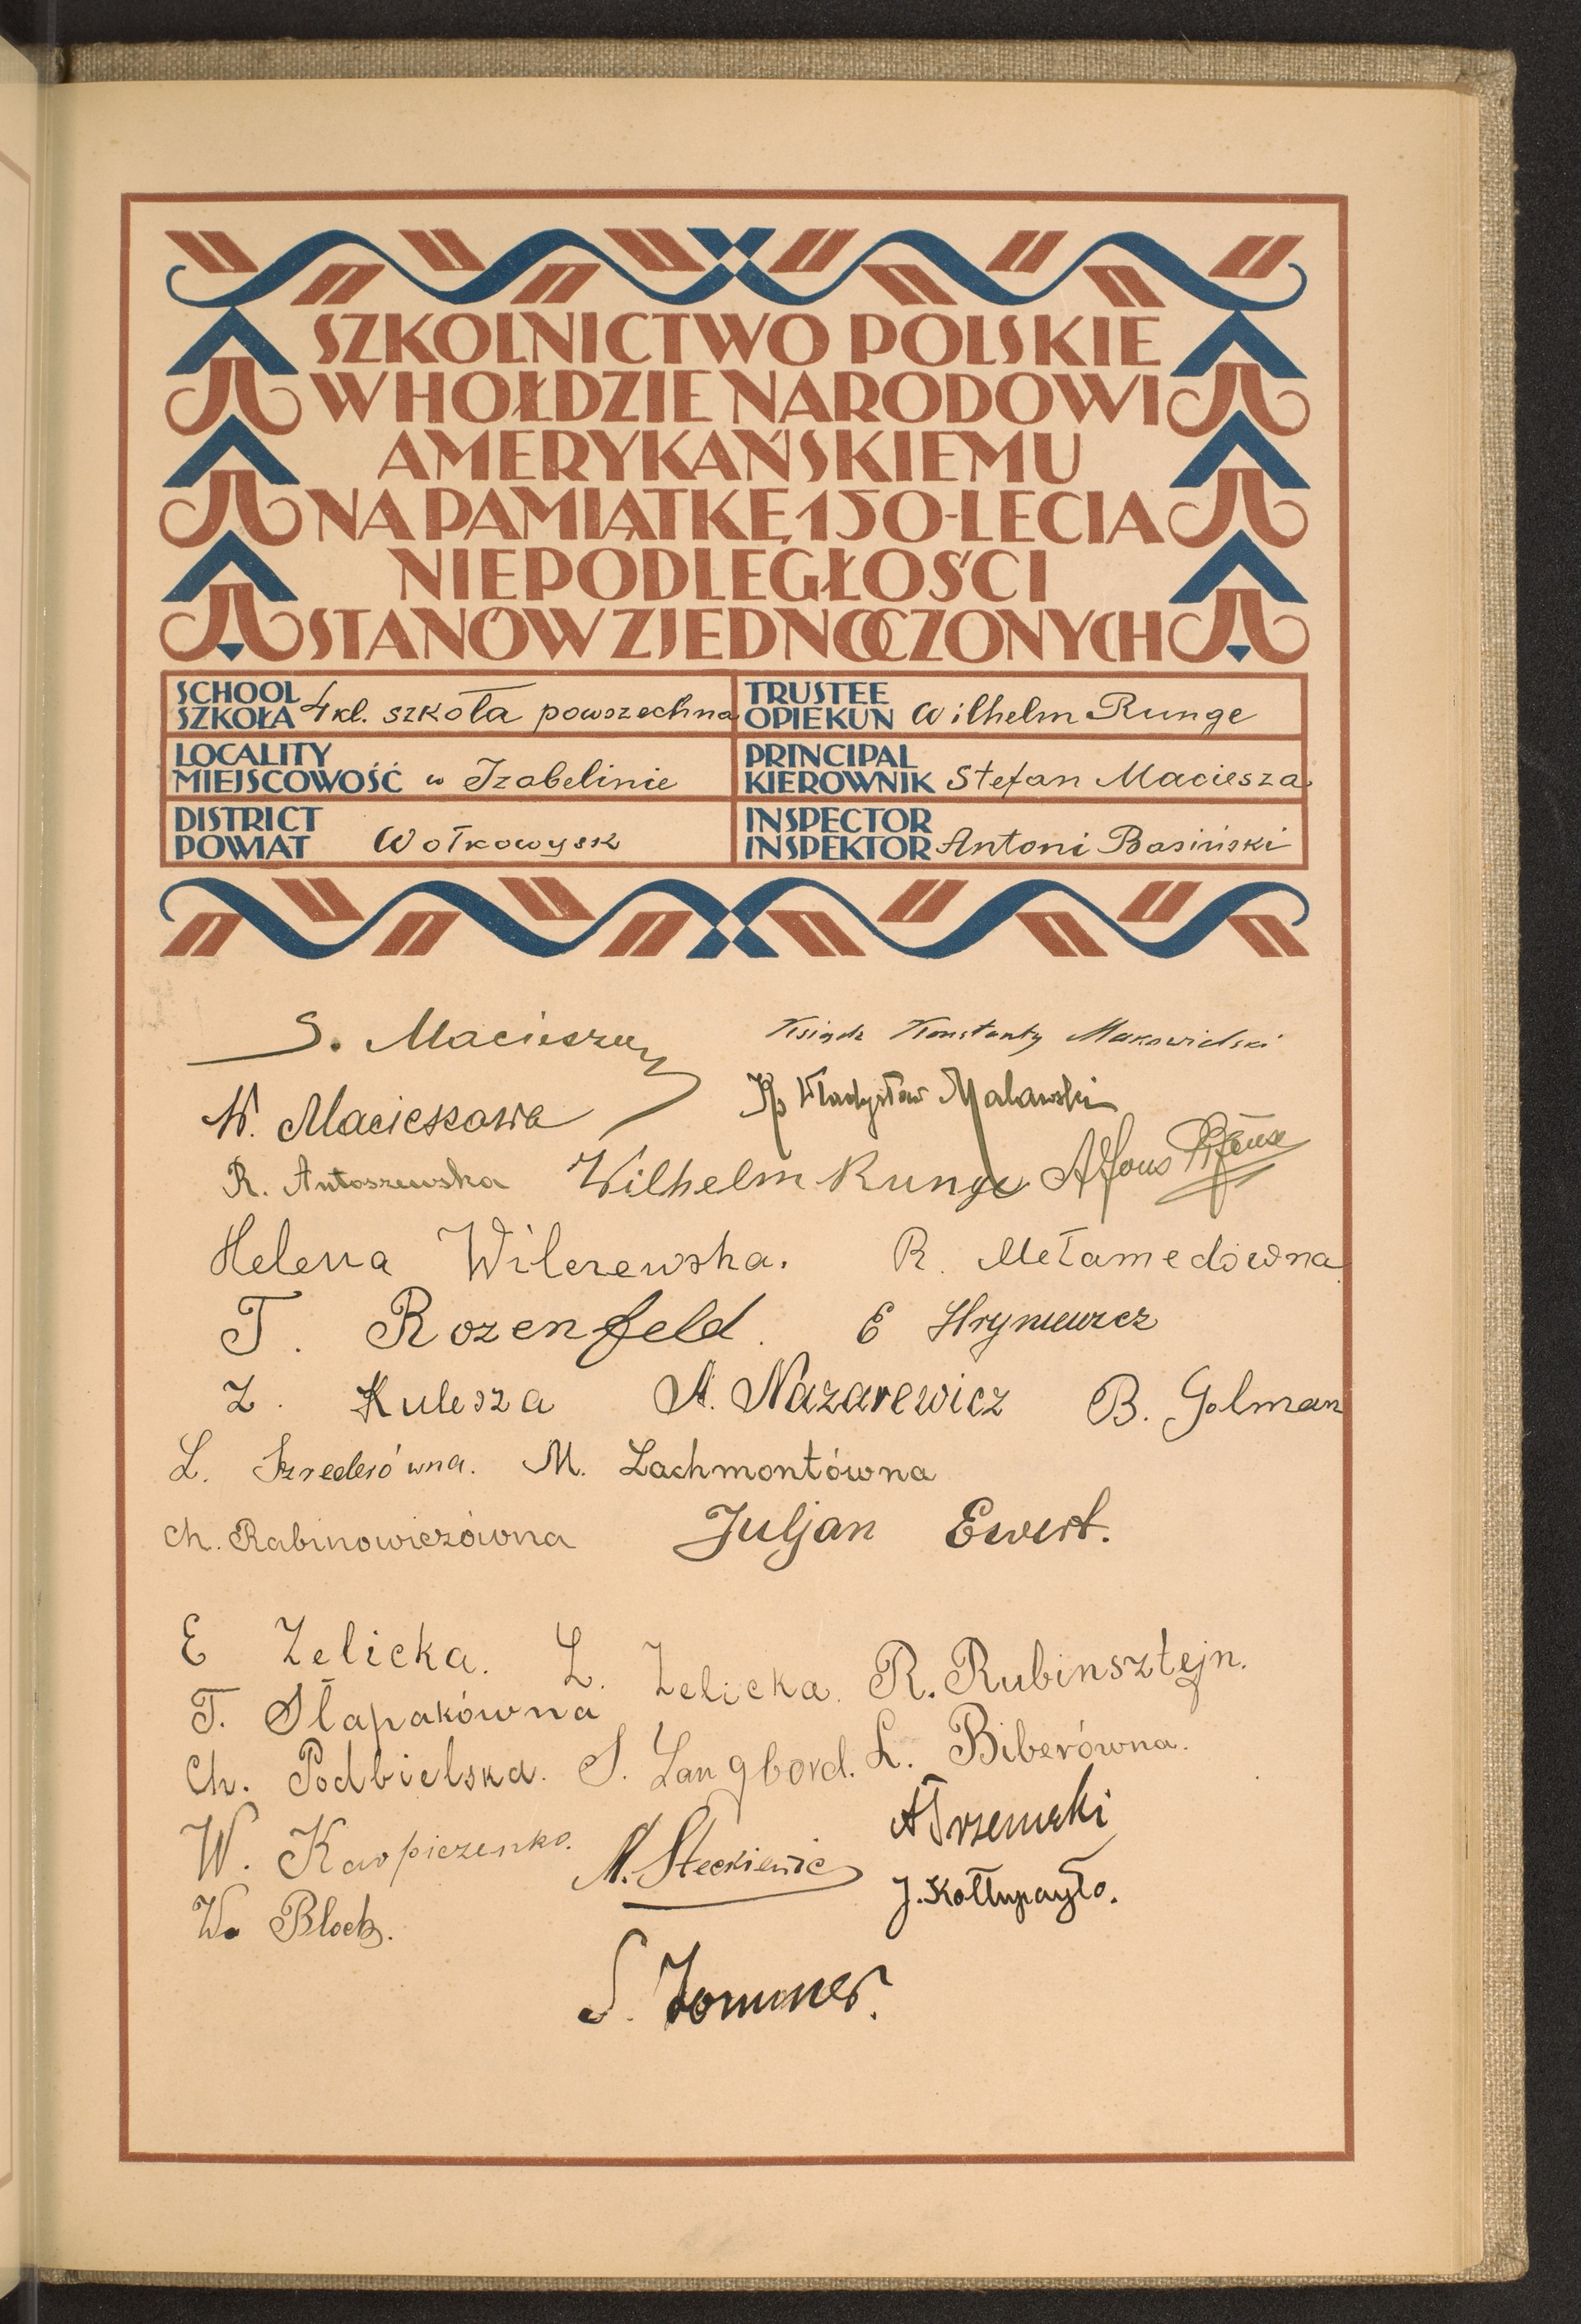 SZKOLNICTWO POLSKIE
W HOŁDZIE NARODOWI
AMERYKAŃSKIEMU
NA PAMIĄTKĘ 150-LECIA
NIEPODLEGŁOŚCI
STANÓW ZJEDNOCZONYCH
SCHOOL
SZKOŁA 4 kl. szkoła powszechna
TRUSTEE
OPIEKUN Wilhelm Runge
LOCALITY
MIEJSCOWOŚĆ w Izabelinie
PRINCIPAL
KIEROWNIK Stefan Maciesza
DISTRICT
POWIAT Wołkowysk
INSPECTOR
INSPEKTOR Antoni Basiński
S. Maciesza Ksiądz Konstanty Makowielski
W. Macieszowa Władysław Malawski
R. Antoszewska Wilhelm Runge Alfons
Helena Wilczewska. R. Mełamedówna
T. Rozenfeld. E Hryniewicz
Z. Kulesza A. Nazarewicz B. Golman
L. Szrederówna. M. Lachmontówna
Ch. Rabinowiczówna Juljan Ewert.
E Zelicka. L. Zelicka. R. Rubinsztejn.
T. Słapakówna
Ch. Podbielska. S. Langbord. L. Biberówna.
W. Karpiczenko. M. Steckiewic
W. Block. J. Kołłupayło.
S. Zommer.